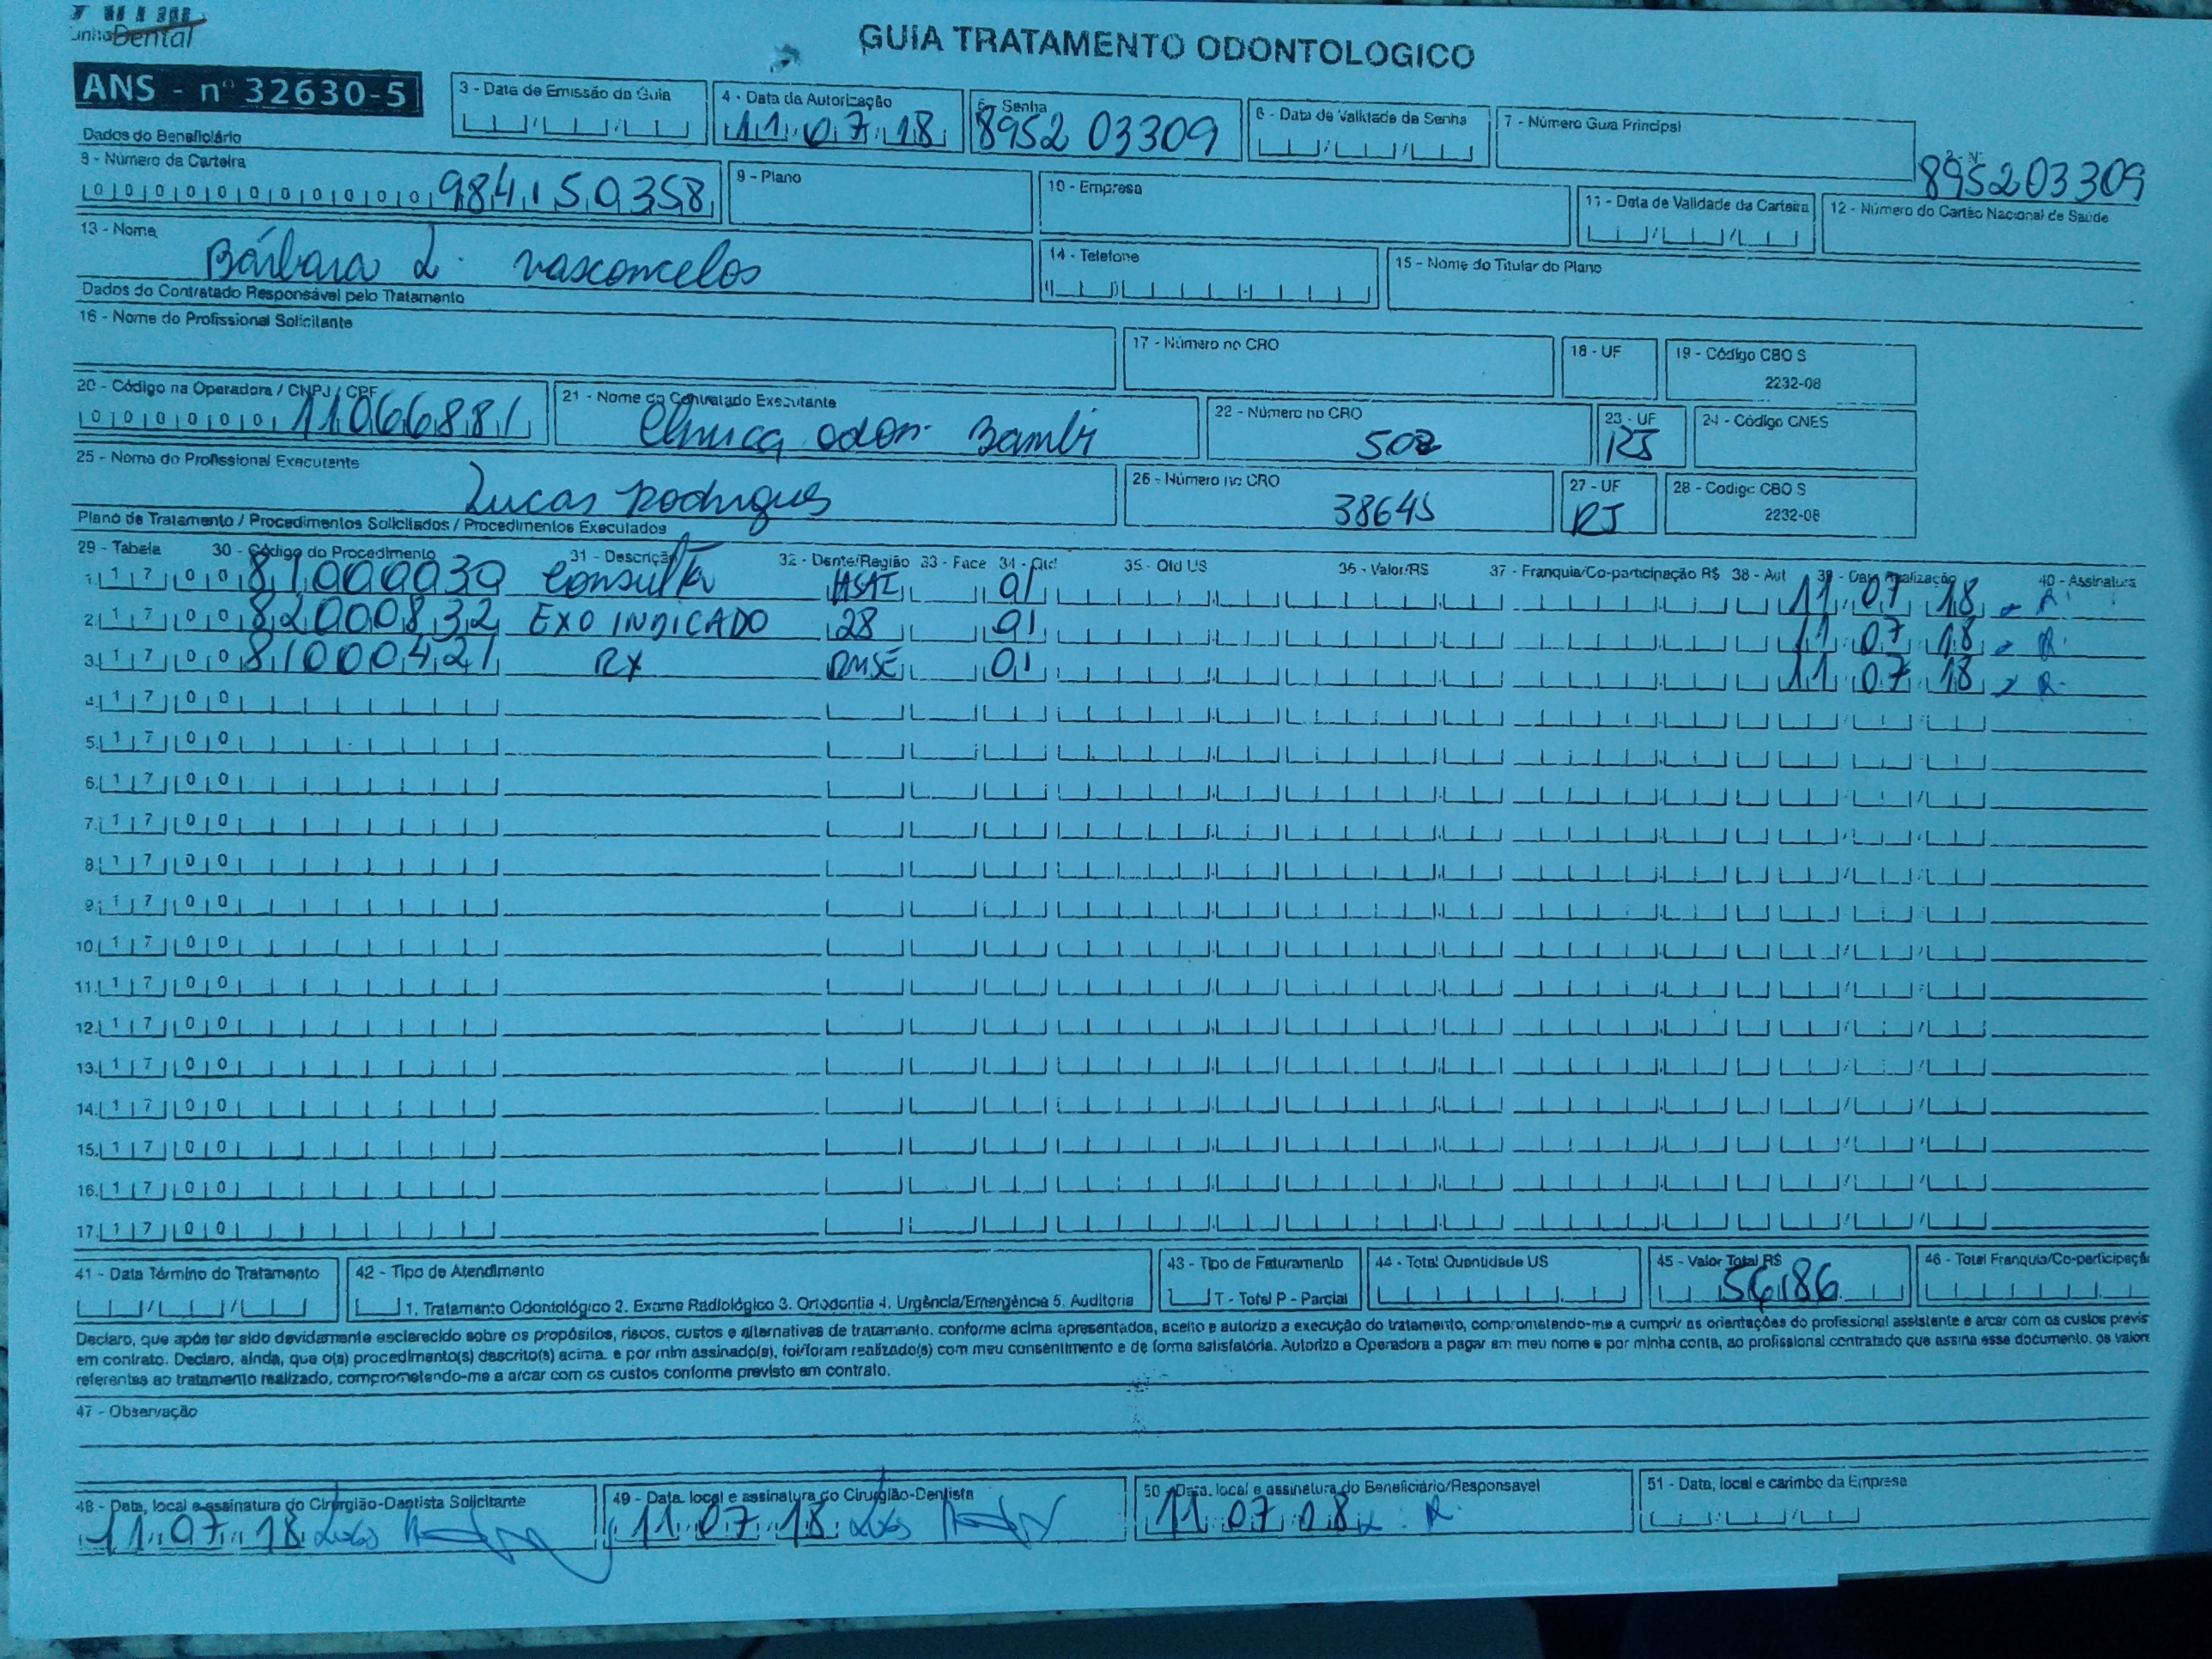 Dental
GUIA TRATAMENTO ODONTOLOGICO
ANS - nº 32630-5
3 - Data de Emissão da Guia
4 - Data da Autorização
11 07 18
Senha
895203309
6 - Data de Validade da Senha
7 - Número Guia Principal
2 - Nº
895203309
Dados do Beneficiário
8 - Número da Carteira
984150358
9 - Plano
10 - Empresa
11 - Data de Validade da Carteira
12 - Número do Cartão Nacional de Saúde
13 - Nome
Bárbara L. Vasconcelos
14 - Telefone
15 - Nome do Titular do Plano
Dados do Contratado Responsável pelo Tratamento
16 - Nome do Profissional Solicitante
17 - Número no CRO
18 - UF
19 - Código CBO S
2232-08
20 - Código na Operadora / CNPJ / CPF
21 - Nome do Contratado Executante
22 - Número no CRO
23 - UF
RJ
24 - Código CNES
25 - Nome do Profissional Executante
Lucas Rodrigues
26 - Número no CRO
38645
27 - UF
RJ
28 - Código CBO S
2232-08
Plano de Tratamento / Procedimentos Solicitados / Procedimentos Executados
29 - Tabela 30 - Código do Procedimento 31 - Descrição 32 - Dente/Região 33 - Face 34 - Qtd 35 - Qtd US 36 - Valor/R$ 37 - Franquia/Co-participação R$ 38 - Aut 39 - Data Realização 40 - Assinatura
1. 1 7 0 0 81000030 Consulta 01 11 07 18
2. 1 7 0 0 82000832 EXO INDICADO 28 01 11 07 18
3. 1 7 0 0 81000421 RX RMSE 01 11 07 18
4. 1 7 0 0
5. 1 7 0 0
6. 1 7 0 0
7. 1 7 0 0
8. 1 7 0 0
9. 1 7 0 0
10. 1 7 0 0
11. 1 7 0 0
12. 1 7 0 0
13. 1 7 0 0
14. 1 7 0 0
15. 1 7 0 0
16. 1 7 0 0
17. 1 7 0 0
41 - Data Término do Tratamento
42 - Tipo de Atendimento
1. Tratamento Odontológico 2. Exame Radiológico 3. Ortodontia 4. Urgência/Emergência 5. Auditoria
43 - Tipo de Faturamento
T - Total P - Parcial
44 - Total Quantidade US
45 - Valor Total R$
56,86
46 - Total Franquia/Co-participaçã
Declaro, que após ter sido devidamente esclarecido sobre os propósitos, riscos, custos e alternativas de tratamento, conforme acima apresentados, aceito e autorizo a execução do tratamento, comprometendo-me a cumprir as orientações do profissional assistente e arcar com os custos previs
em contrato. Declaro, ainda, que o(s) procedimento(s) descrito(s) acima, e por mim assinado(s), foi/foram realizado(s) com meu consentimento e de forma satisfatória. Autorizo a Operadora a pagar em meu nome e por minha conta, ao profissional contratado que assina esse documento, os valore
referentes ao tratamento realizado, comprometendo-me a arcar com os custos conforme previsto em contrato.
47 - Observação
48 - Data, local e assinatura do Cirurgião-Dentista Solicitante
11 07 18
49 - Data, local e assinatura do Cirurgião-Dentista
11 07 18
50 - Data, local e assinatura do Beneficiário/Responsável
11 07 08
51 - Data, local e carimbo da Empresa